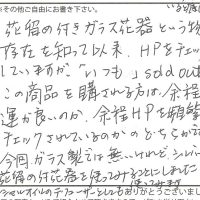 ※その他ご自由にお書き下さい。
花留の付きガラス花器という物の
存在を知って以来、HPをチェック
していますが、「いつも」sold out
この商品を購される方は、余程
運が良いのか、余程HPを頻繁に
チェックされているのかのどちらかで
今回ガラス製では無いけれどシルバー
花留の付花器を使ってみることにしました
ありがとうございました